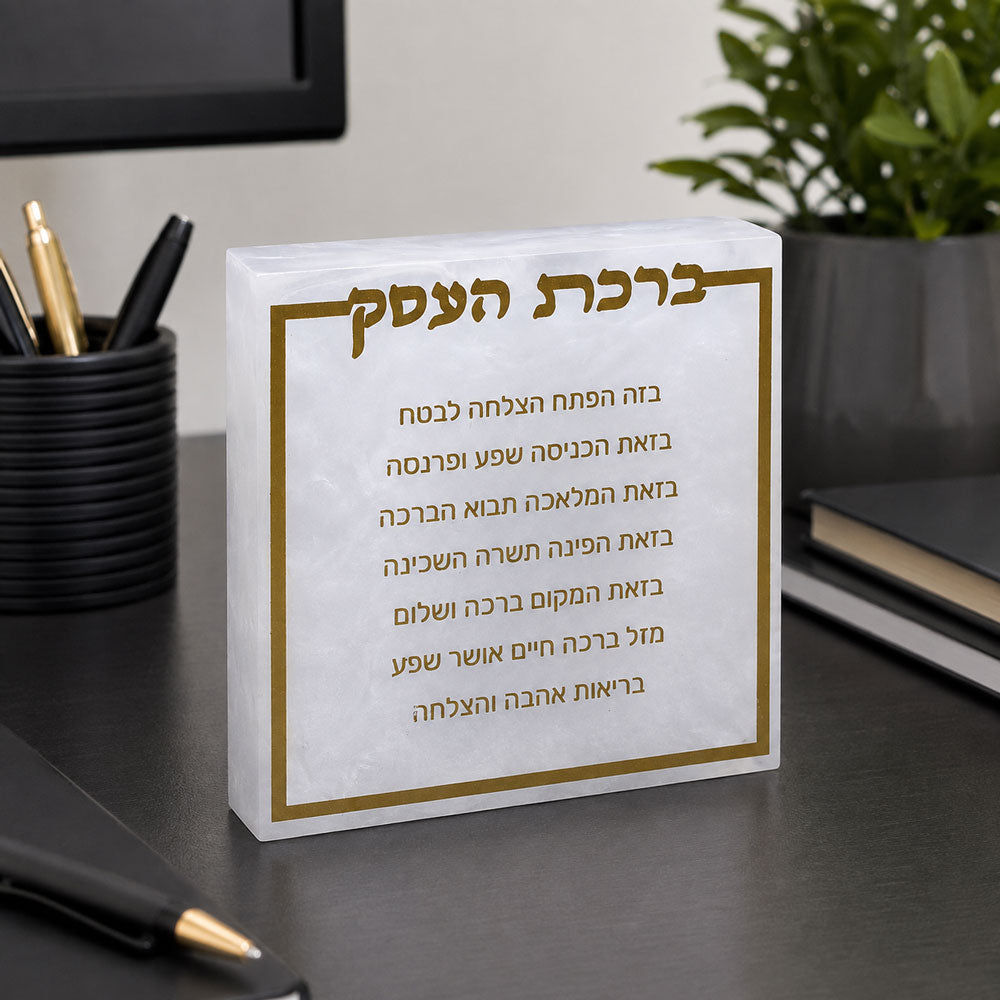 ברכת העסק
בזה הפתח הצלחה לבטח
בזאת הכניסה שפע ופרנסה
בזאת המלאכה תבוא הברכה
בזאת הפינה תשרה השכינה
בזאת המקום ברכה ושלום
מזל ברכה חיים אושר שפע
בריאות אהבה והצלחה